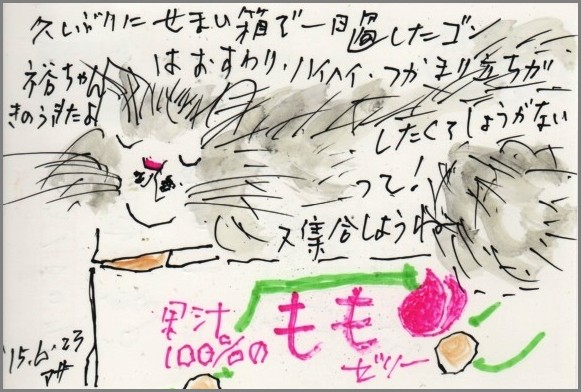 久しぶりにせまい箱で一日過したゴン
はおすわり、ハイハイ、つかまり立ちが
したくてしょうがない
って!
又集合しようね
裕ちゃん
きのうきたよ
果汁
100%の
もも
ゼリー
'15.6.23